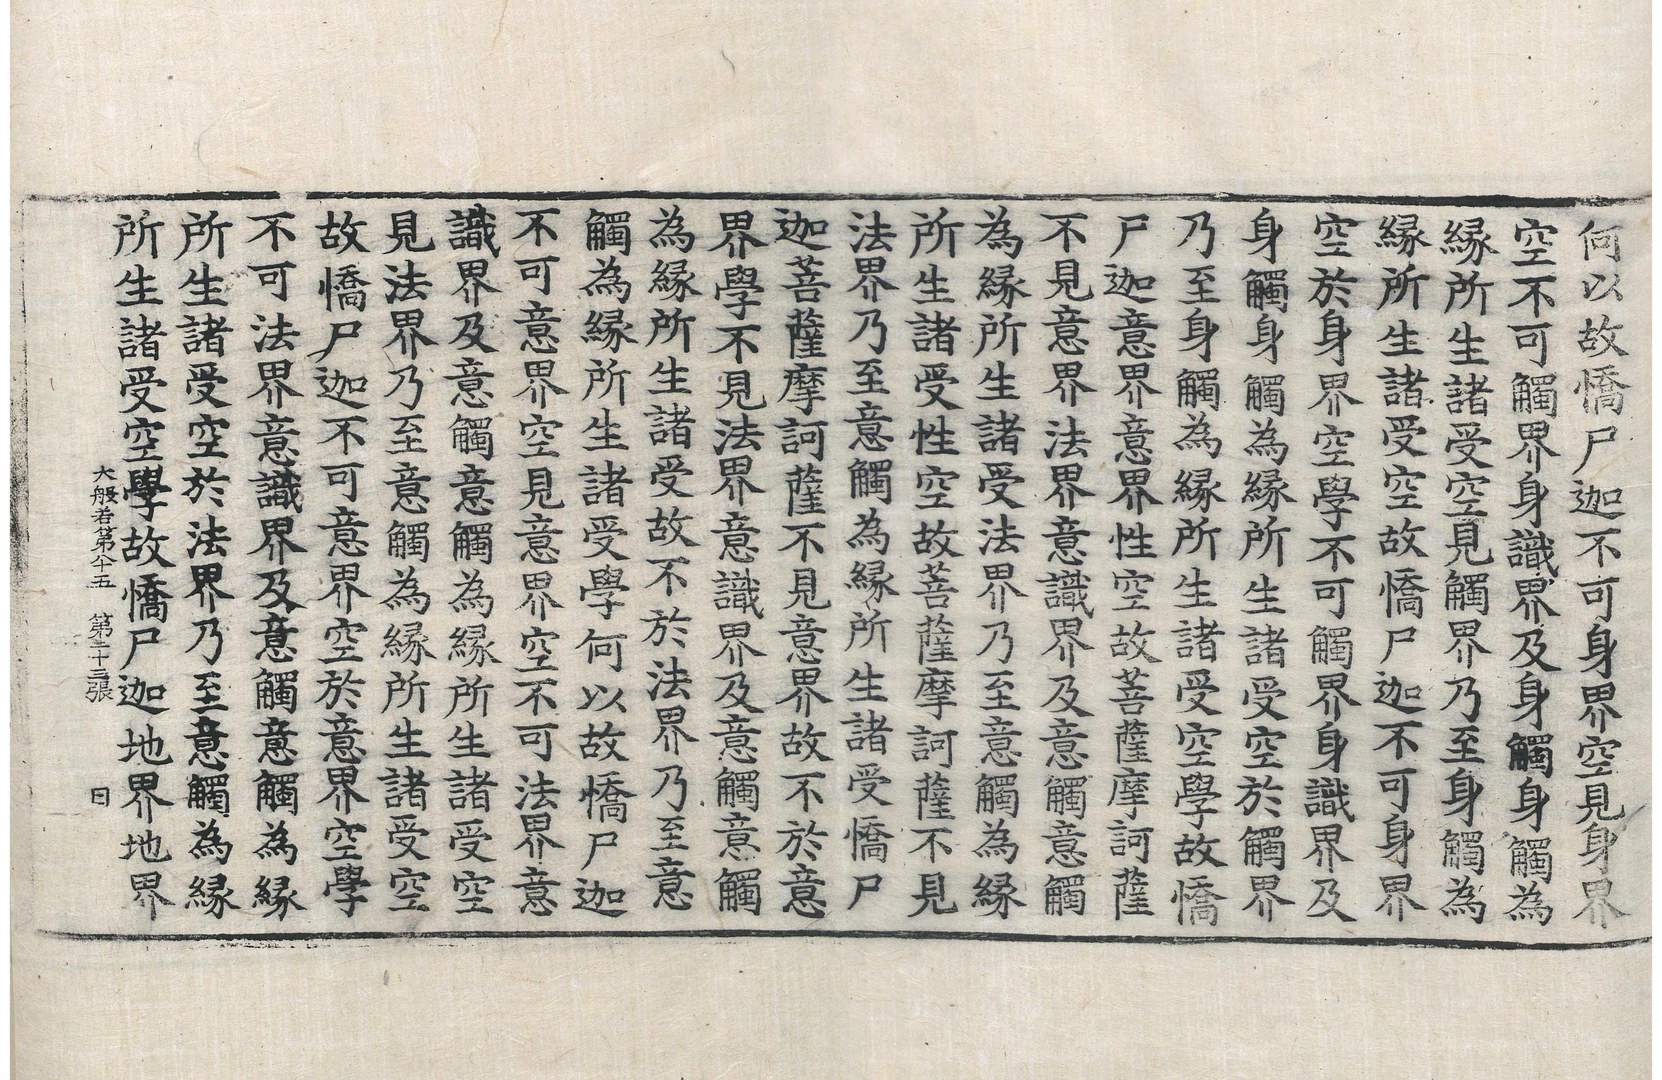 何以故憍尸迦不可身界空見身界
空不可觸界身識界及身觸身觸為
縁所生諸受空見觸界乃至身觸為
縁所生諸受空故憍尸迦不可身界
空於身界空學不可觸界身識界及
身觸身觸為縁所生諸受空於觸界
乃至身觸為縁所生諸受空學故憍
尸迦意界意界性空故菩薩摩訶薩
不見意界法界意識界及意觸意觸
為縁所生諸受法界乃至意觸為縁
所生諸受性空故菩薩摩訶薩不見
法界乃至意觸為縁所生諸受憍尸
迦菩薩摩訶薩不見意界故不於意
界學不見法界意識界及意觸意觸
為縁所生諸受故不於法界乃至意
觸為縁所生諸受學何以故憍尸迦
不可意界空見意界空不可法界意
識界及意觸意觸為縁所生諸受空
見法界乃至意觸為縁所生諸受空
故憍尸迦不可意界空於意界空學
不可法界意識界及意觸意觸為縁
所生諸受空於法界乃至意觸為縁
所生諸受空學故憍尸迦地界地界
大般若第八十五 第二十三張 日